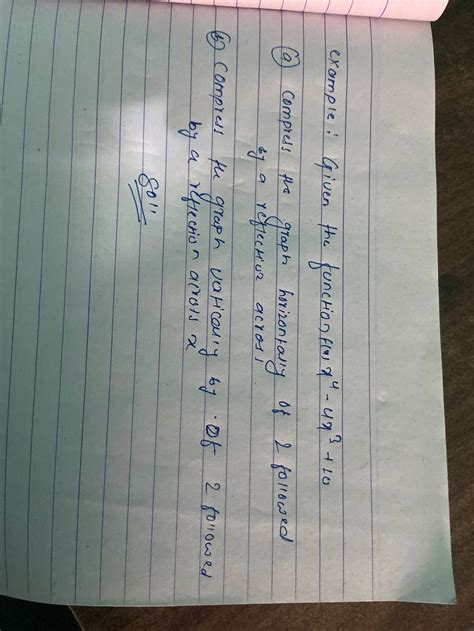 example : Given the function f(x) x⁴ - 4x³ + 10
(a) compress the graph horizontally of 2 followed
by a reflection across
(b) compress the graph vertically by of 2 followed
by a reflection across x
Sol"